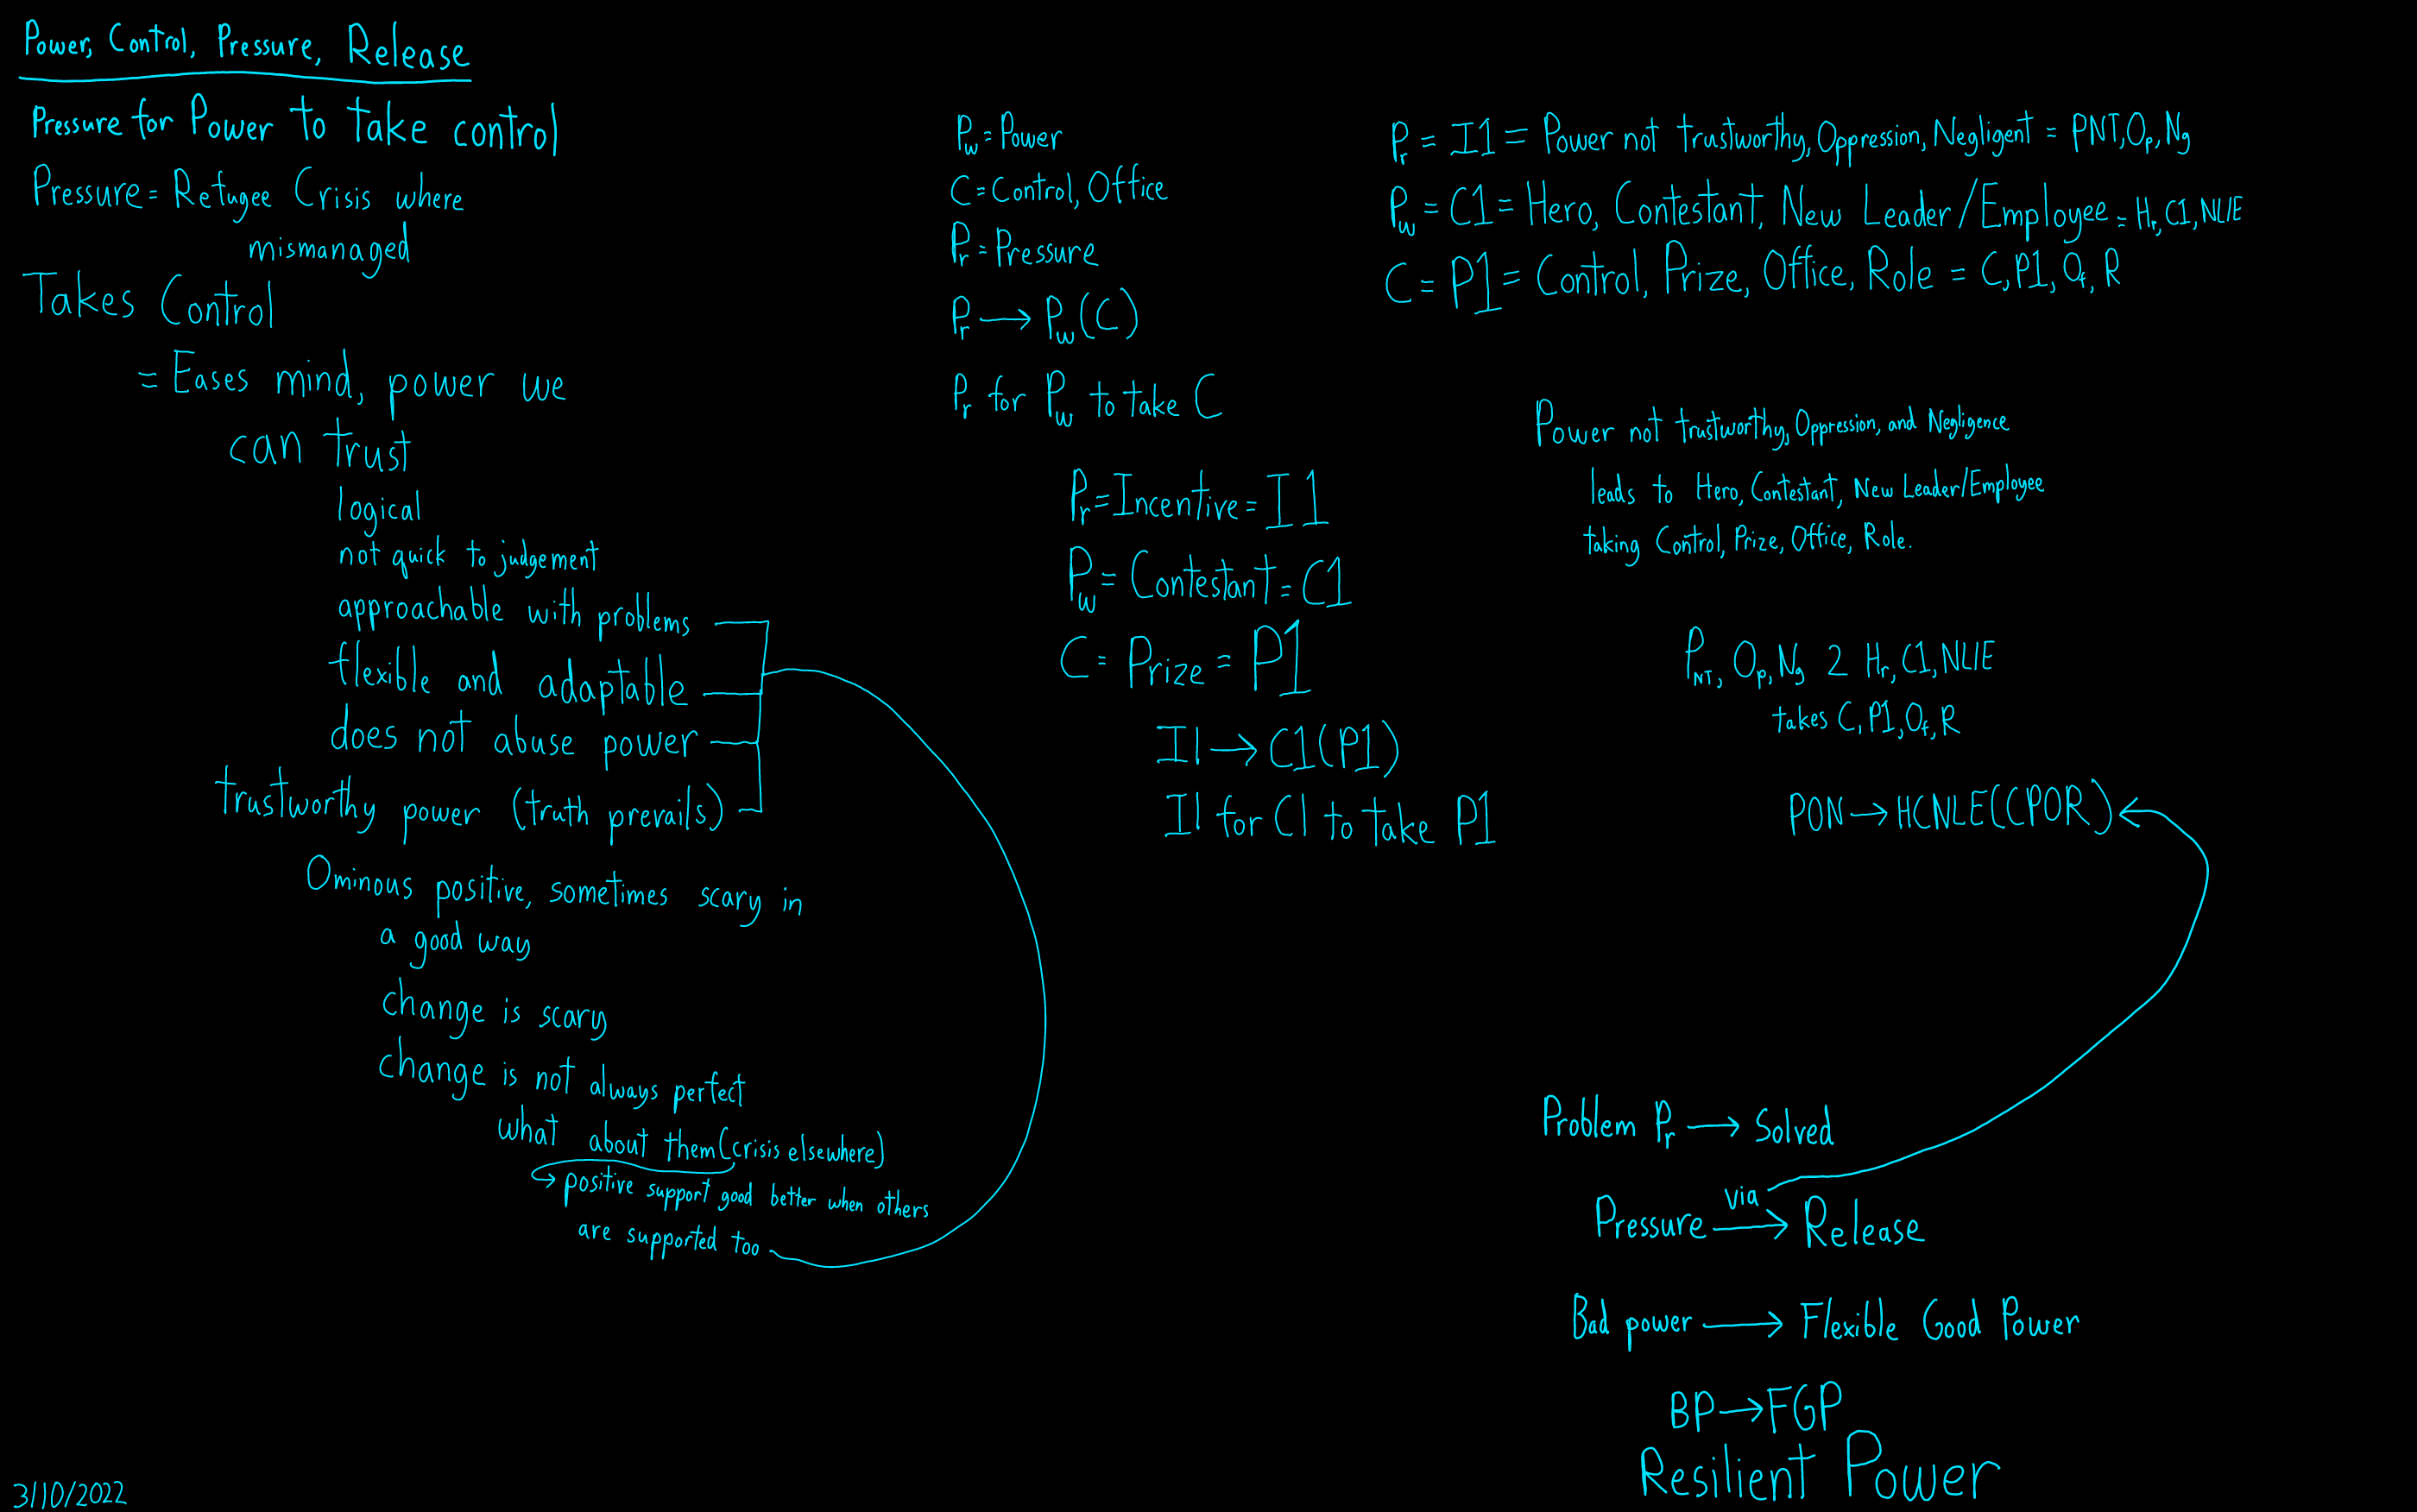 Power, Control, Pressure, Release
Pressure for Power to take control
Pressure = Refugee Crisis where
mismanaged
Takes Control
= Eases mind, power we
can trust
logical
not quick to judgement
approachable with problems
flexible and adaptable
does not abuse power
trustworthy power (truth prevails)
Ominous positive, sometimes scary in
a good way
change is scary
change is not always perfect
what about them (crisis elsewhere)
→ positive support good better when others
are supported too
3/10/2022
Pw = Power
C = Control, Office
Pr = Pressure
Pr → Pw(C)
Pr for Pw to take C
Pr = Incentive = I1
Pw = Contestant = C1
C = Prize = P1
I1 → C1(P1)
I1 for C1 to take P1
Pr = I1 = Power not trustworthy, Oppression, Negligent = PNT, Op, Ng
Pw = C1 = Hero, Contestant, New Leader/Employee = Hr, C1, NL/E
C = P1 = Control, Prize, Office, Role = C, P1, Of, R
Power not trustworthy, Oppression, and Negligence
leads to Hero, Contestant, New Leader/Employee
taking Control, Prize, Office, Role.
PNT, Op, Ng 2 Hr, C1, NL/E
takes C, P1, Of, R
PON → HCNLE(CPOR)
Problem Pr → Solved
Pressure via → Release
Bad power → Flexible Good Power
BP → FGP
Resilient Power